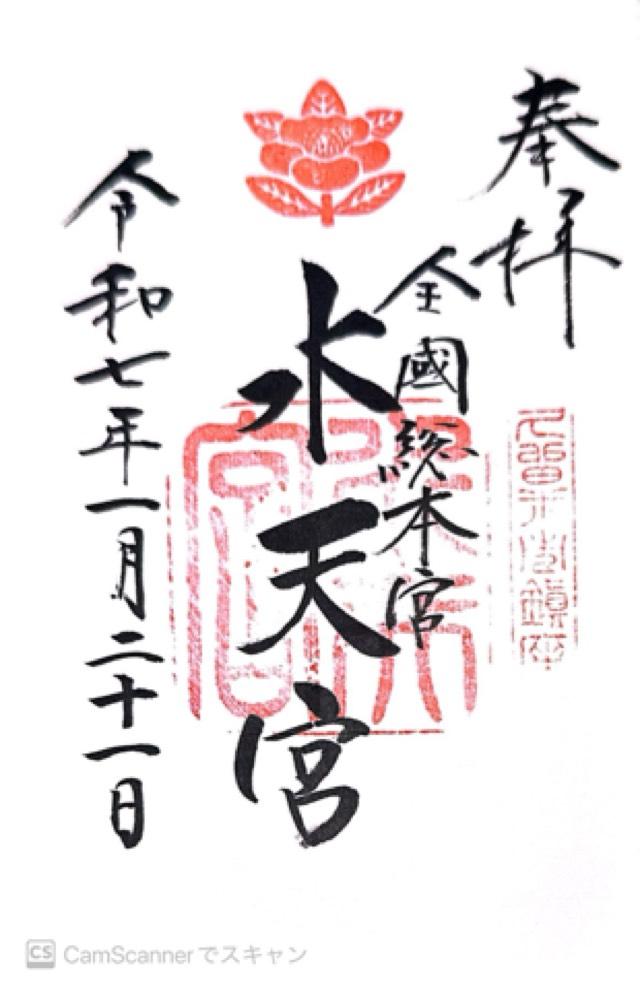 奉拝
鎮座
全國総本宮
水天宮
令和七年一月二十一日
CS CamScannerでスキャン